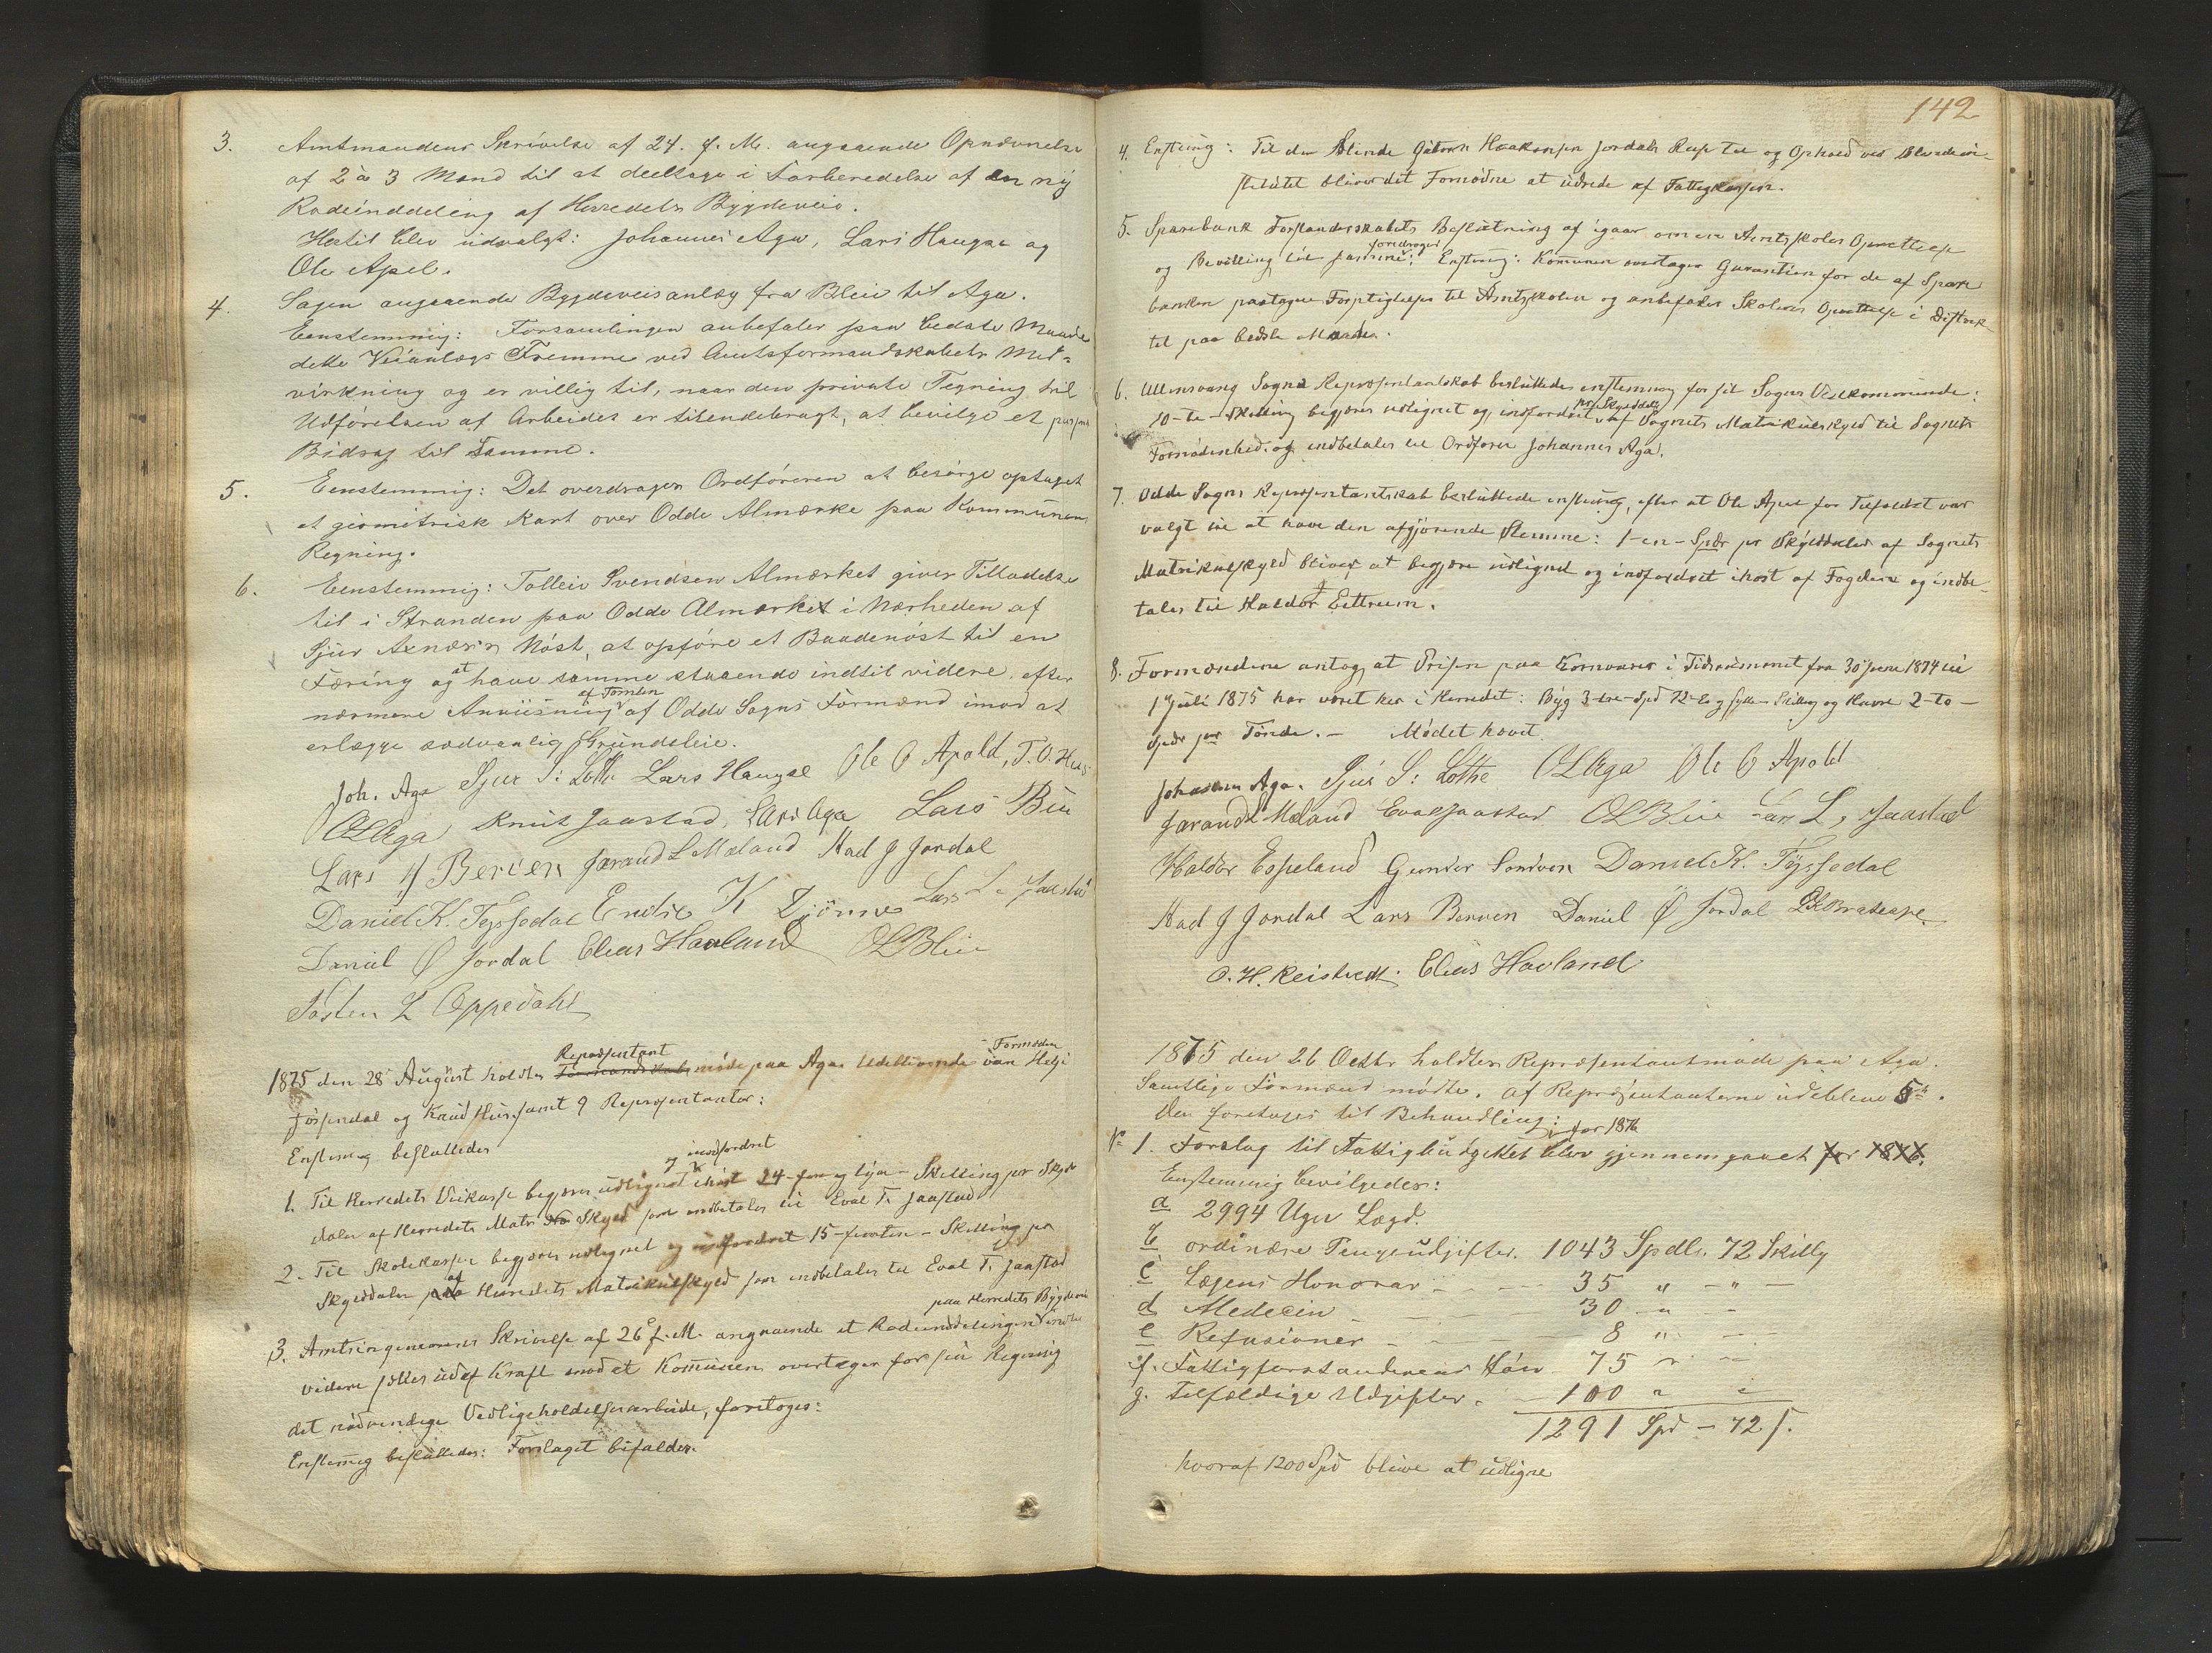 3. Amtmandens Skrivelse af 24. f. M. angaaende Opnævnelse
af 2 à 3 Mand til at deeltage i Forberedelse af en ny
Rodeinddeling af Herredets Bygdeveie.
Hertil blev udvalgt: Johannes Aga, Lars Haugse og
Ole Apel.
4. Sagen angaaende Bygdeveisanlæg fra Bleie til Aga.
Eenstemmig: Forsamlingen anbefaler paa bedste Maade
dette Veianlægs Fremme ved Amtsformandskabets Med-
virkning og er villig til, naar den private Tegning til
Udførelsen af Arbeidet er tilendebragt, at bevilge et
Bidrag til Samme.
5. Eenstemmig: Det overdrages Ordføreren at besørge optaget
et geometrisk Kart over Odde Almærke paa Kommunens
Regning.
6. Eenstemmig: Tolleiv Svendsen Almærket giver Tilladelse
til i Stranden paa Odde Almærket i Nærheden af
Sjur Nøst, at opføre et Baadenøst til en
Færing og at have samme staaende indtil videre, efter
nærmere Anviisning af Tomten af Odde Sogns Formænd imod at
erlægge sædvanlig Grundsleie.
Joh. Aga Sjur S: Lothe Lars Haugse Ole O Apold, T. O. Hus
O L Aga Knut Jaastad, Lars Aga Lars Bleie
Lars J Berven Jørand L Mæland Aad J Jordal
Daniel K. Tyssedal Endre K Lars L. Jaastad
Daniel Ø Jordal Elias Havland O L Bleie
Tosten L Oppedahl
1875 den 28 August holdtes Repræsentant møde paa Aga. Udeblivende van Formæden Helje
Jøsendal og Knud Hus, samt 9 Repræsentanter:
Enstemmig besluttedes
1. Til Herredets Veikasse begjæres udlignet og indfordret ihøst 24-fire og tyve- Skilling pr Skyld-
daler af Herredets Matr Skyld som indbetales til Eval T. Jaastad
2. Til Skolekassen begjæres udlignet og indfordret 15-femten- Skilling pr
Skylddaler af Herredets Matrikulskyld som indbetales til Eval T. Jaastad
3. Amtsingeniørens Skrivelse af 26 f. M. angaaende at Rodeinddelingen paa Herredets Bygdeveie indtil
videre sættes ud af Kraft imod at Kommunen overtager for sin Regning
det nødvendige Vedligeholdelsesarbeide, foretoges:
Enstemmig besluttedes: Forslaget bifaldes.
142
4. Enstemmig: Til den blinde Haakonsen Jordals Reise til og Ophold ved Blindein-
stitutet bliver det Fornødne at udrede af Fattigkassen.
5. Sparebank Forstanderskabets Beslutning af igaar om en Amtsskoles Oprettelse
og Bevilling til samme: foredroges Enstemmig: Kommunen overtager Garantien for de af Spare
banken paatagne Forpligtelser til Amtsskolen og anbefaler Skolens Oprettelse i Distrik-
tet paa bedste Maade.
6. Ullensvang Sogns Repræsentantskab besluttedes enstemmig for sit Sogns Vedkommende:
10-ti-Skilling begjæres udlignet og indfordret pr Skylddaler af Sognets Matrikulskyld til Sognets
Fornødenhed og indbetales til Ordfører Johannes Aga.
7. Odde Sogns Repræsentantskab besluttede enstemmig, efter at Ole Apel for Tilfældet var
valgt til at have den afgjørende Stemme: 1-en-Spdr pr Skylddaler af Sognets
Matrikulskyld bliver at begjære udlignet og indfordret ihøst af Fogden og indbe-
tales til Haldor Eittreim.
8. Formændene antog, at Prisen paa Kornvarer i Tidsrummet fra 30 Juni 1874 til
1 Juli 1875 har været her i Herredet: Byg 3-tre-Spd 72-to og sytti- Skilling og Havre 2-to-
Spdr pr Tønde. - Mødet hævet.
Johannes Aga. Sjur S: Lothe O L Aga Ole O Apold
Jørand L Mæland Eval Jaastad O L Bleie Lars L. Jaastad
Haldor Espeland Gunder Sandven Daniel K. Tyssedal
Aad J Jordal Lars Berven Daniel Ø Jordal
O. H. Reisæter Elias Havland
1875 den 26 Octbr holdtes Repræsentantmøde paa Aga.
Samtlige Formænd mødte. af Repræsentanterne udebleve 5.
Der foretoges til Behandling:
No 1. Forslag til Fattigbudgettet for 1876 blev gjennemgaaet for 1876.
Enstemmig bevilgedes:
a 2994 Uger Lægd.
b ordinære Pengeudgifter. 1043 Spdlr. 72 Skillg
c Lægens Honorar - - - 35 " - " -
d Medecin - - - 30 " -
e Refusioner - - - 8 " - -
f. Fattigforstanderens Løn 75 " -
g. Tilfældige Udgifter. 100 " "
1291 Spd - 72 s.
hvoraf 1200 Spd blive at udligne